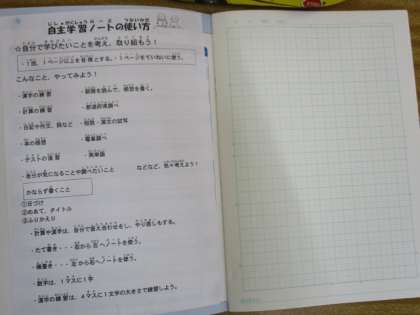 じしゅがくしゅうノートの つかいかた
自主学習ノートの使い方
☆自分で学びたいことを考え、取り組もう！
・1回、1ページ以上を目標とする。・1ページをていねいに使う。
こんなこと、やってみよう！
・漢字の練習　・新聞を読んで、感想を書く。
・計算の練習　・都道府県調べ
・日記や作文、詩など　・俳句・漢文の試写
・本の感想
・テストの復習　・英単語
・自分が気になることや調べたいこと　などなど、色々考えよう！
かならず書くこと
①日づけ
②めあて、タイトル
③ふりかえり
・計算や漢字は、自分で答え合わせをし、やり直しもする。
・たて書き・・・右から左へノートを使う。
・横書き・・・左から右へノートを使う。
・数字は、1マスに1字
・漢字の練習は、4マスに1文字の大きさで練習しよう。